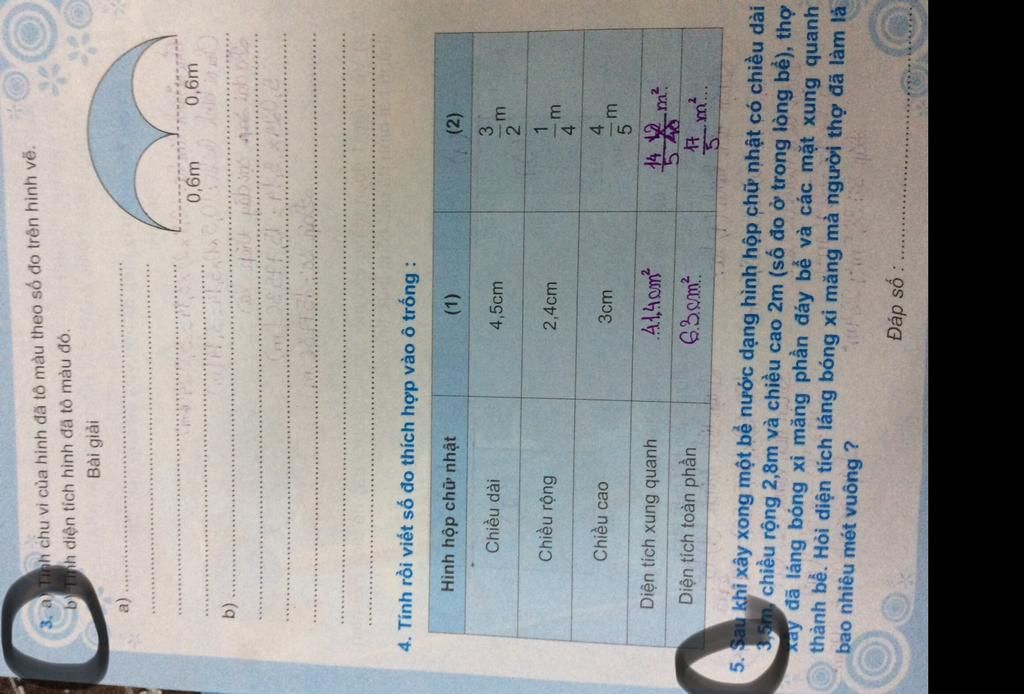 3. a) Tính chu vi của hình đã tô màu theo số đo trên hình vẽ.
b) Tính diện tích hình đã tô màu đó.
Bài giải
a)
0,6m 0,6m
b)
4. Tính rồi viết số đo thích hợp vào ô trống :
Hình hộp chữ nhật (1) (2)
Chiều dài 4,5cm 3/2 m
Chiều rộng 2,4cm 1/4 m
Chiều cao 3cm 4/5 m
Diện tích xung quanh 41,4cm² 14/5 m²
Diện tích toàn phần 63cm² 17/5 m²
5. Sau khi xây xong một bể nước dạng hình hộp chữ nhật có chiều dài
3,5m, chiều rộng 2,8m và chiều cao 2m (số đo ở trong lòng bể), thợ
xây đã láng bóng xi măng phần đáy bể và các mặt xung quanh
thành bể. Hỏi diện tích láng bóng xi măng mà người thợ đã làm là
bao nhiêu mét vuông ?
Đáp số :